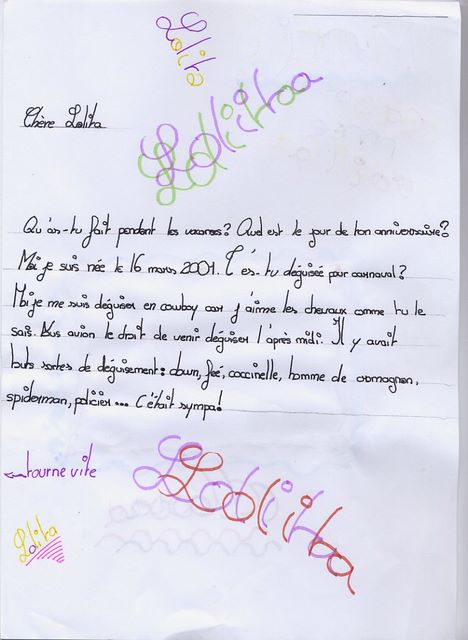 Lolita
Loliitaa
Chère Lolita
Qu'as-tu fait pendent les vacances? Quel est le jour de ton anniversaire?
Moi je suis née le 16 mars 2001. T'es-tu déguisée pour carnaval?
Moi je me suis déguiser en cowboy car j'aime les chevaux comme tu le
sais. Nous avion le droit de venir déguiser l'après midi. Il y avait
touts sortes de déguisement: clown, feé, coccinelle, homme de cromagnon,
spiderman, policier... C'était sympa!
tourne vite
Lolita
Lolita